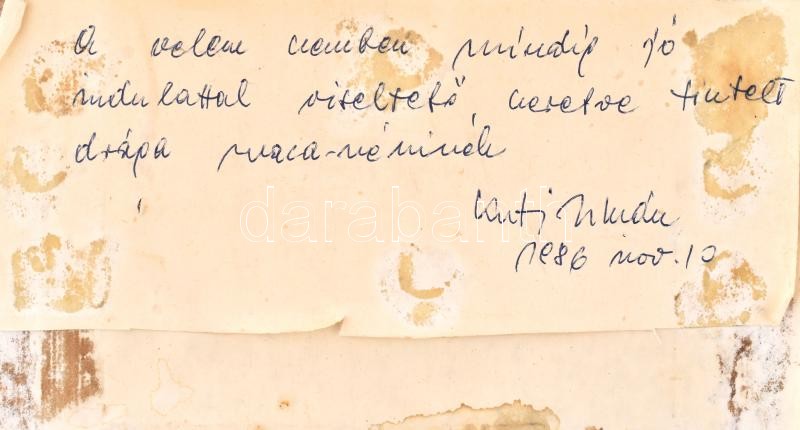 A velem szemben mindig jó
indulattal viseltető, szeretve tisztelt
drága maca-néninek
1986 nov. 10
darabanth